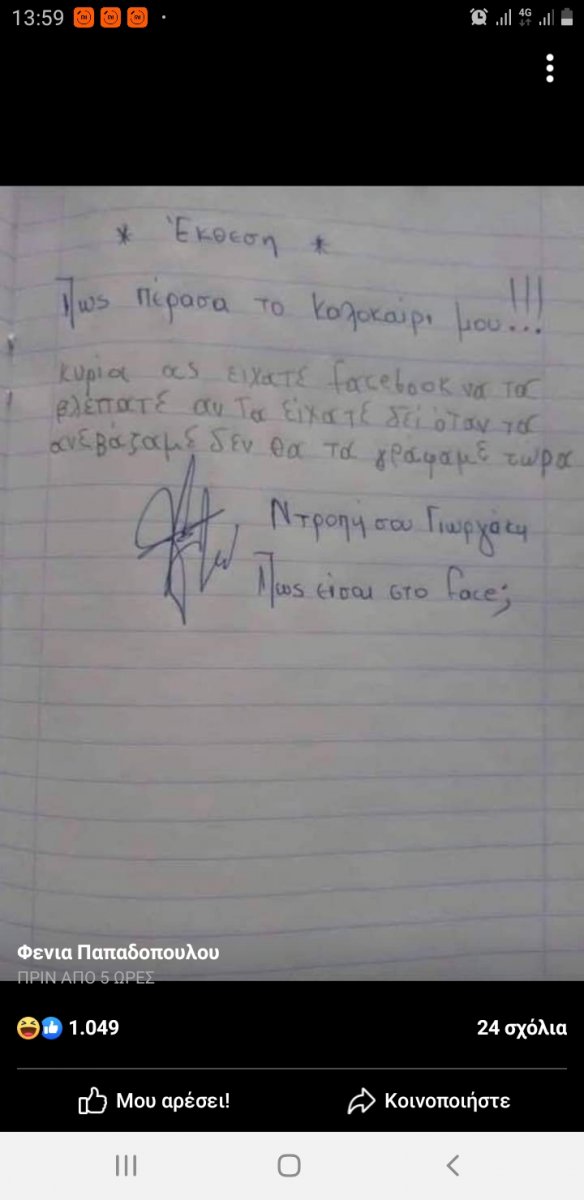 13:59
4G
* Έκθεση *
Πως πέρασα το καλοκαίρι μου!!!...
κυρία ας είχατε facebook να τα
βλέπατε αν τα είχατε δεί όταν τα
ανεβάζαμε δεν θα τα γράφαμε τώρα
Ντροπή σου Γιωργάκη
Πως είσαι στο face;
Φενια Παπαδοπουλου
ΠΡΙΝ ΑΠΟ 5 ΩΡΕΣ
1.049
24 σχόλια
Μου αρέσει!
Κοινοποιήστε